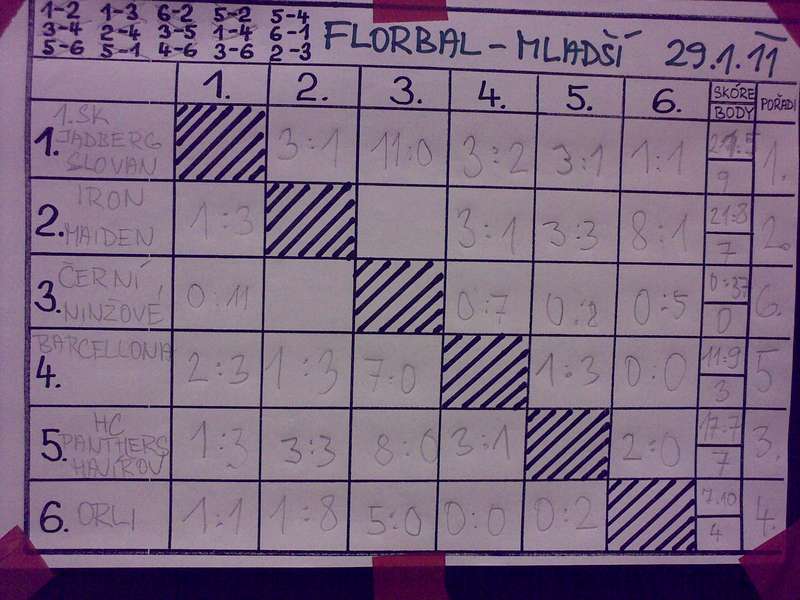 1-2 1-3 6-2 5-2 5-4
3-4 2-4 3-5 1-4 6-1
5-6 5-1 4-6 3-6 2-3
FLORBAL - MLADŠÍ 29.1.11
1. 2. 3. 4. 5. 6. SKÓRE BODY POŘADÍ
1. 1.SK JADBERG SLOVAN 3:1 11:0 3:2 3:1 1:1 9 1.
2. IRON MAIDEN 1:3 3:1 3:3 8:1 21:8 7 2.
3. ČERNÍ NINŽOVÉ 0:11 0:7 0:8 0:5 0:37 0 6.
4. BARCELLONA 2:3 1:3 7:0 1:3 0:0 11:9 3 5
5. HC PANTHERS HAVÍŘOV 1:3 3:3 8:0 3:1 2:0 17:7 7 3.
6. ORLI 1:1 1:8 5:0 0:0 0:2 7:10 4 4.